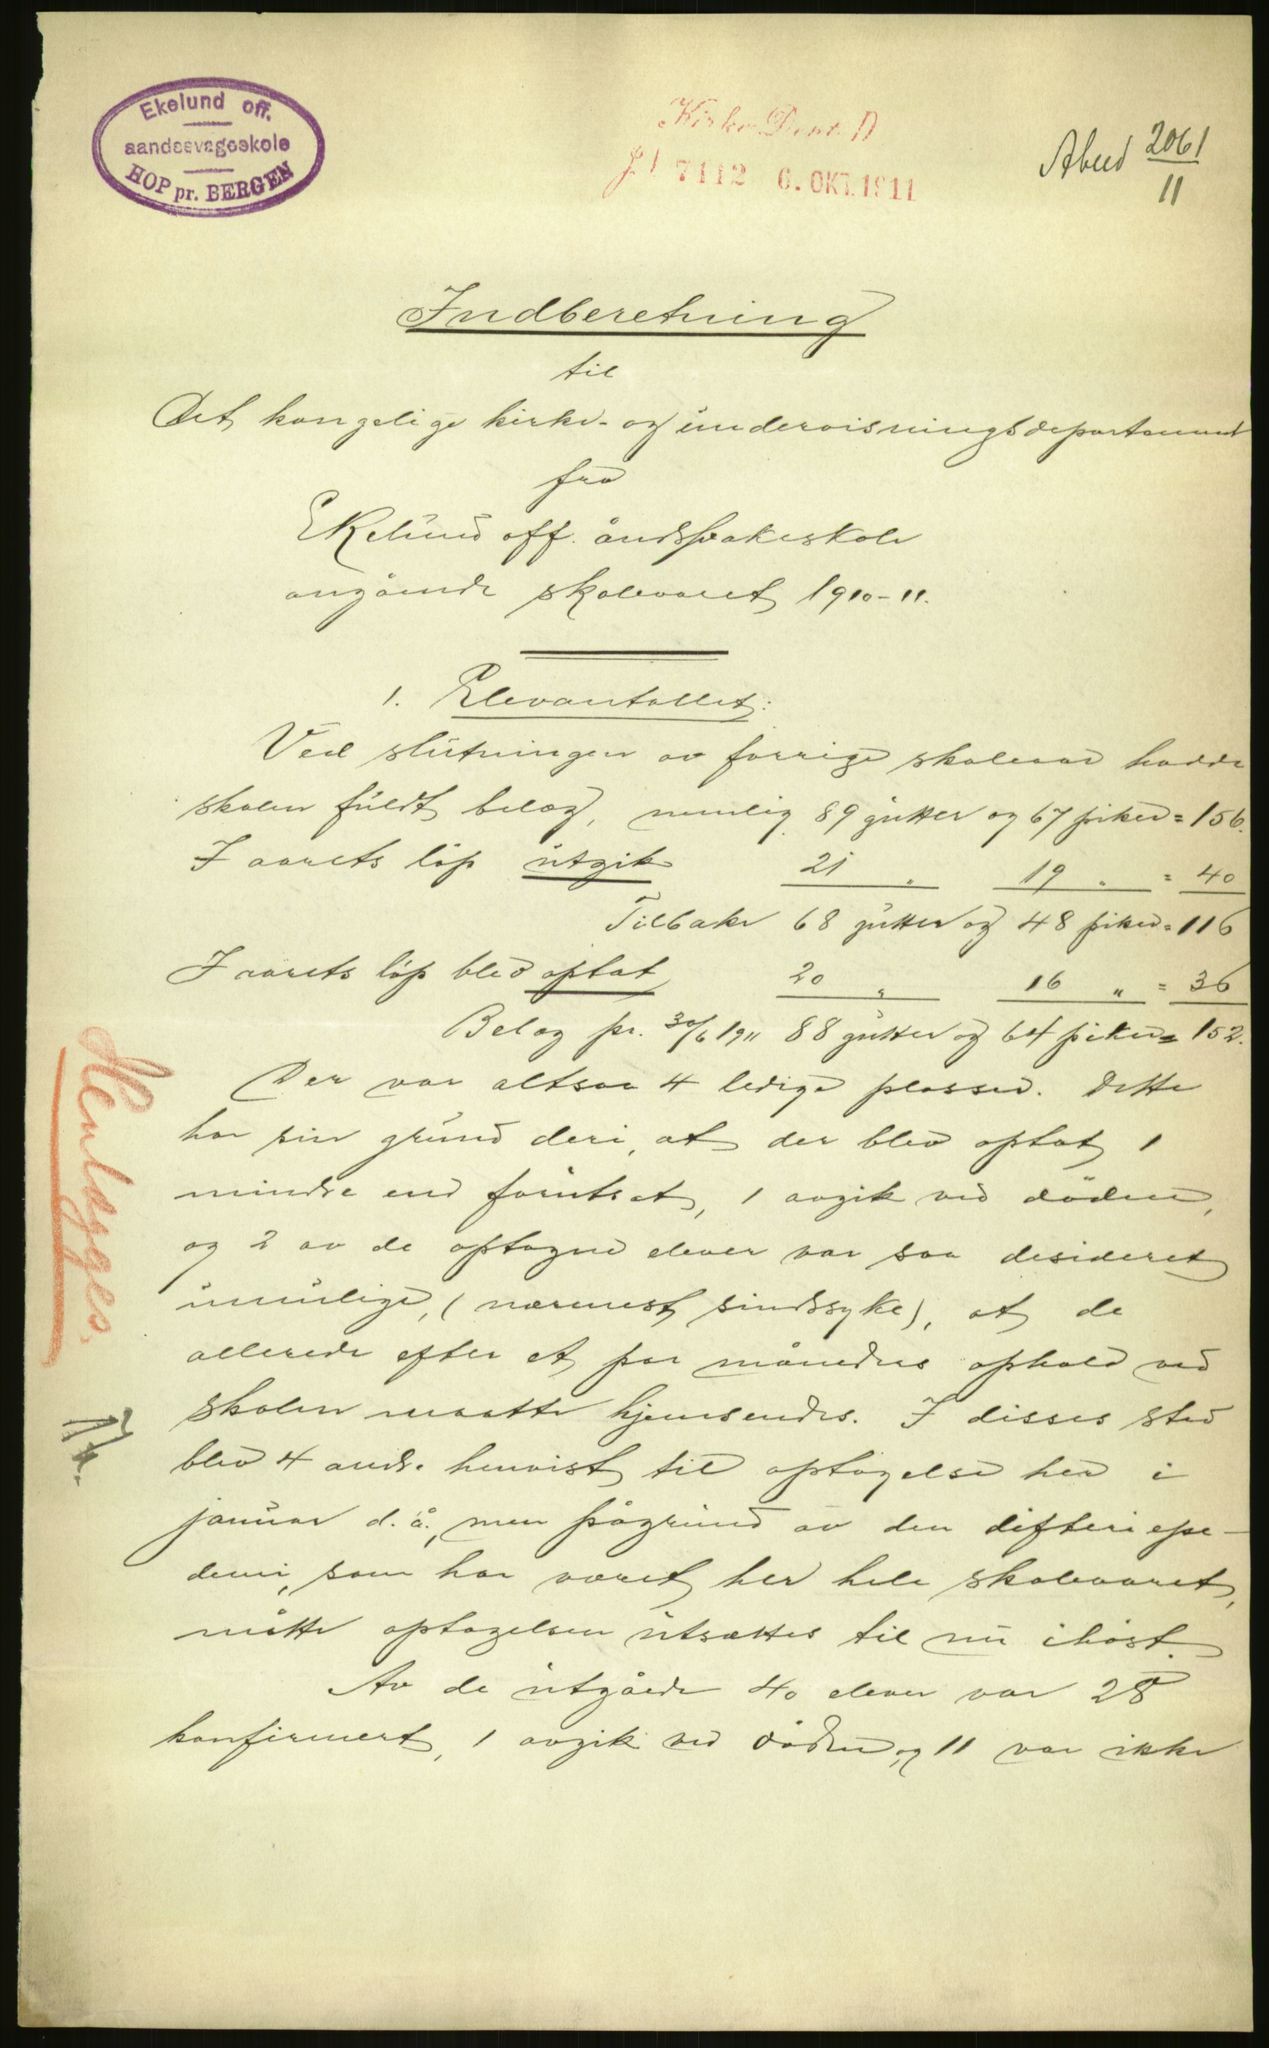 Ekelund off.
aandssvageskole
HOP pr. BERGEN
Kirke Dept. D
J 7112 6. OKT. 1911
2061
11
Indberetning
til
Det kongelige kirke- og undervisningsdepartement
fra
Ekelund off. åndssvakeskole
angående skoleaaret 1910-11.
1. Elevantallet:
Ved slutningen av forrige skoleaar hadde
skolen fuldt belæg, nemlig 89 gutter og 67 piker = 156.
I aarets løp utgik 21 " 19 " = 40
Tilbake 68 gutter og 48 piker = 116
I aarets løp blev optat 20 " 16 " = 36
Belæg pr. 30/6 1911 88 gutter og 64 piker = 152.
Der var altsaa 4 ledige plasser. Dette
har sin grund deri, at der blev optat 1
mindre end forutsat, 1 avgik ved døden,
og 2 av de optagne elever var saa desideret
umulige, (nærmest sindssyke), at de
allerede efter et par måneders ophold ved
skolen maatte hjemsendes. I disses sted
blev 4 andre henvist til optagelse her i
januar d. å., men pågrund av den difteriepe-
demi, som har været her hele skoleaaret,
måtte optagelsen utsættes til nu ihøst.
Av de utgåede 40 elever var 28
konfirmert, 1 avgik ved døden, og 11 var ikke
Henlægges.